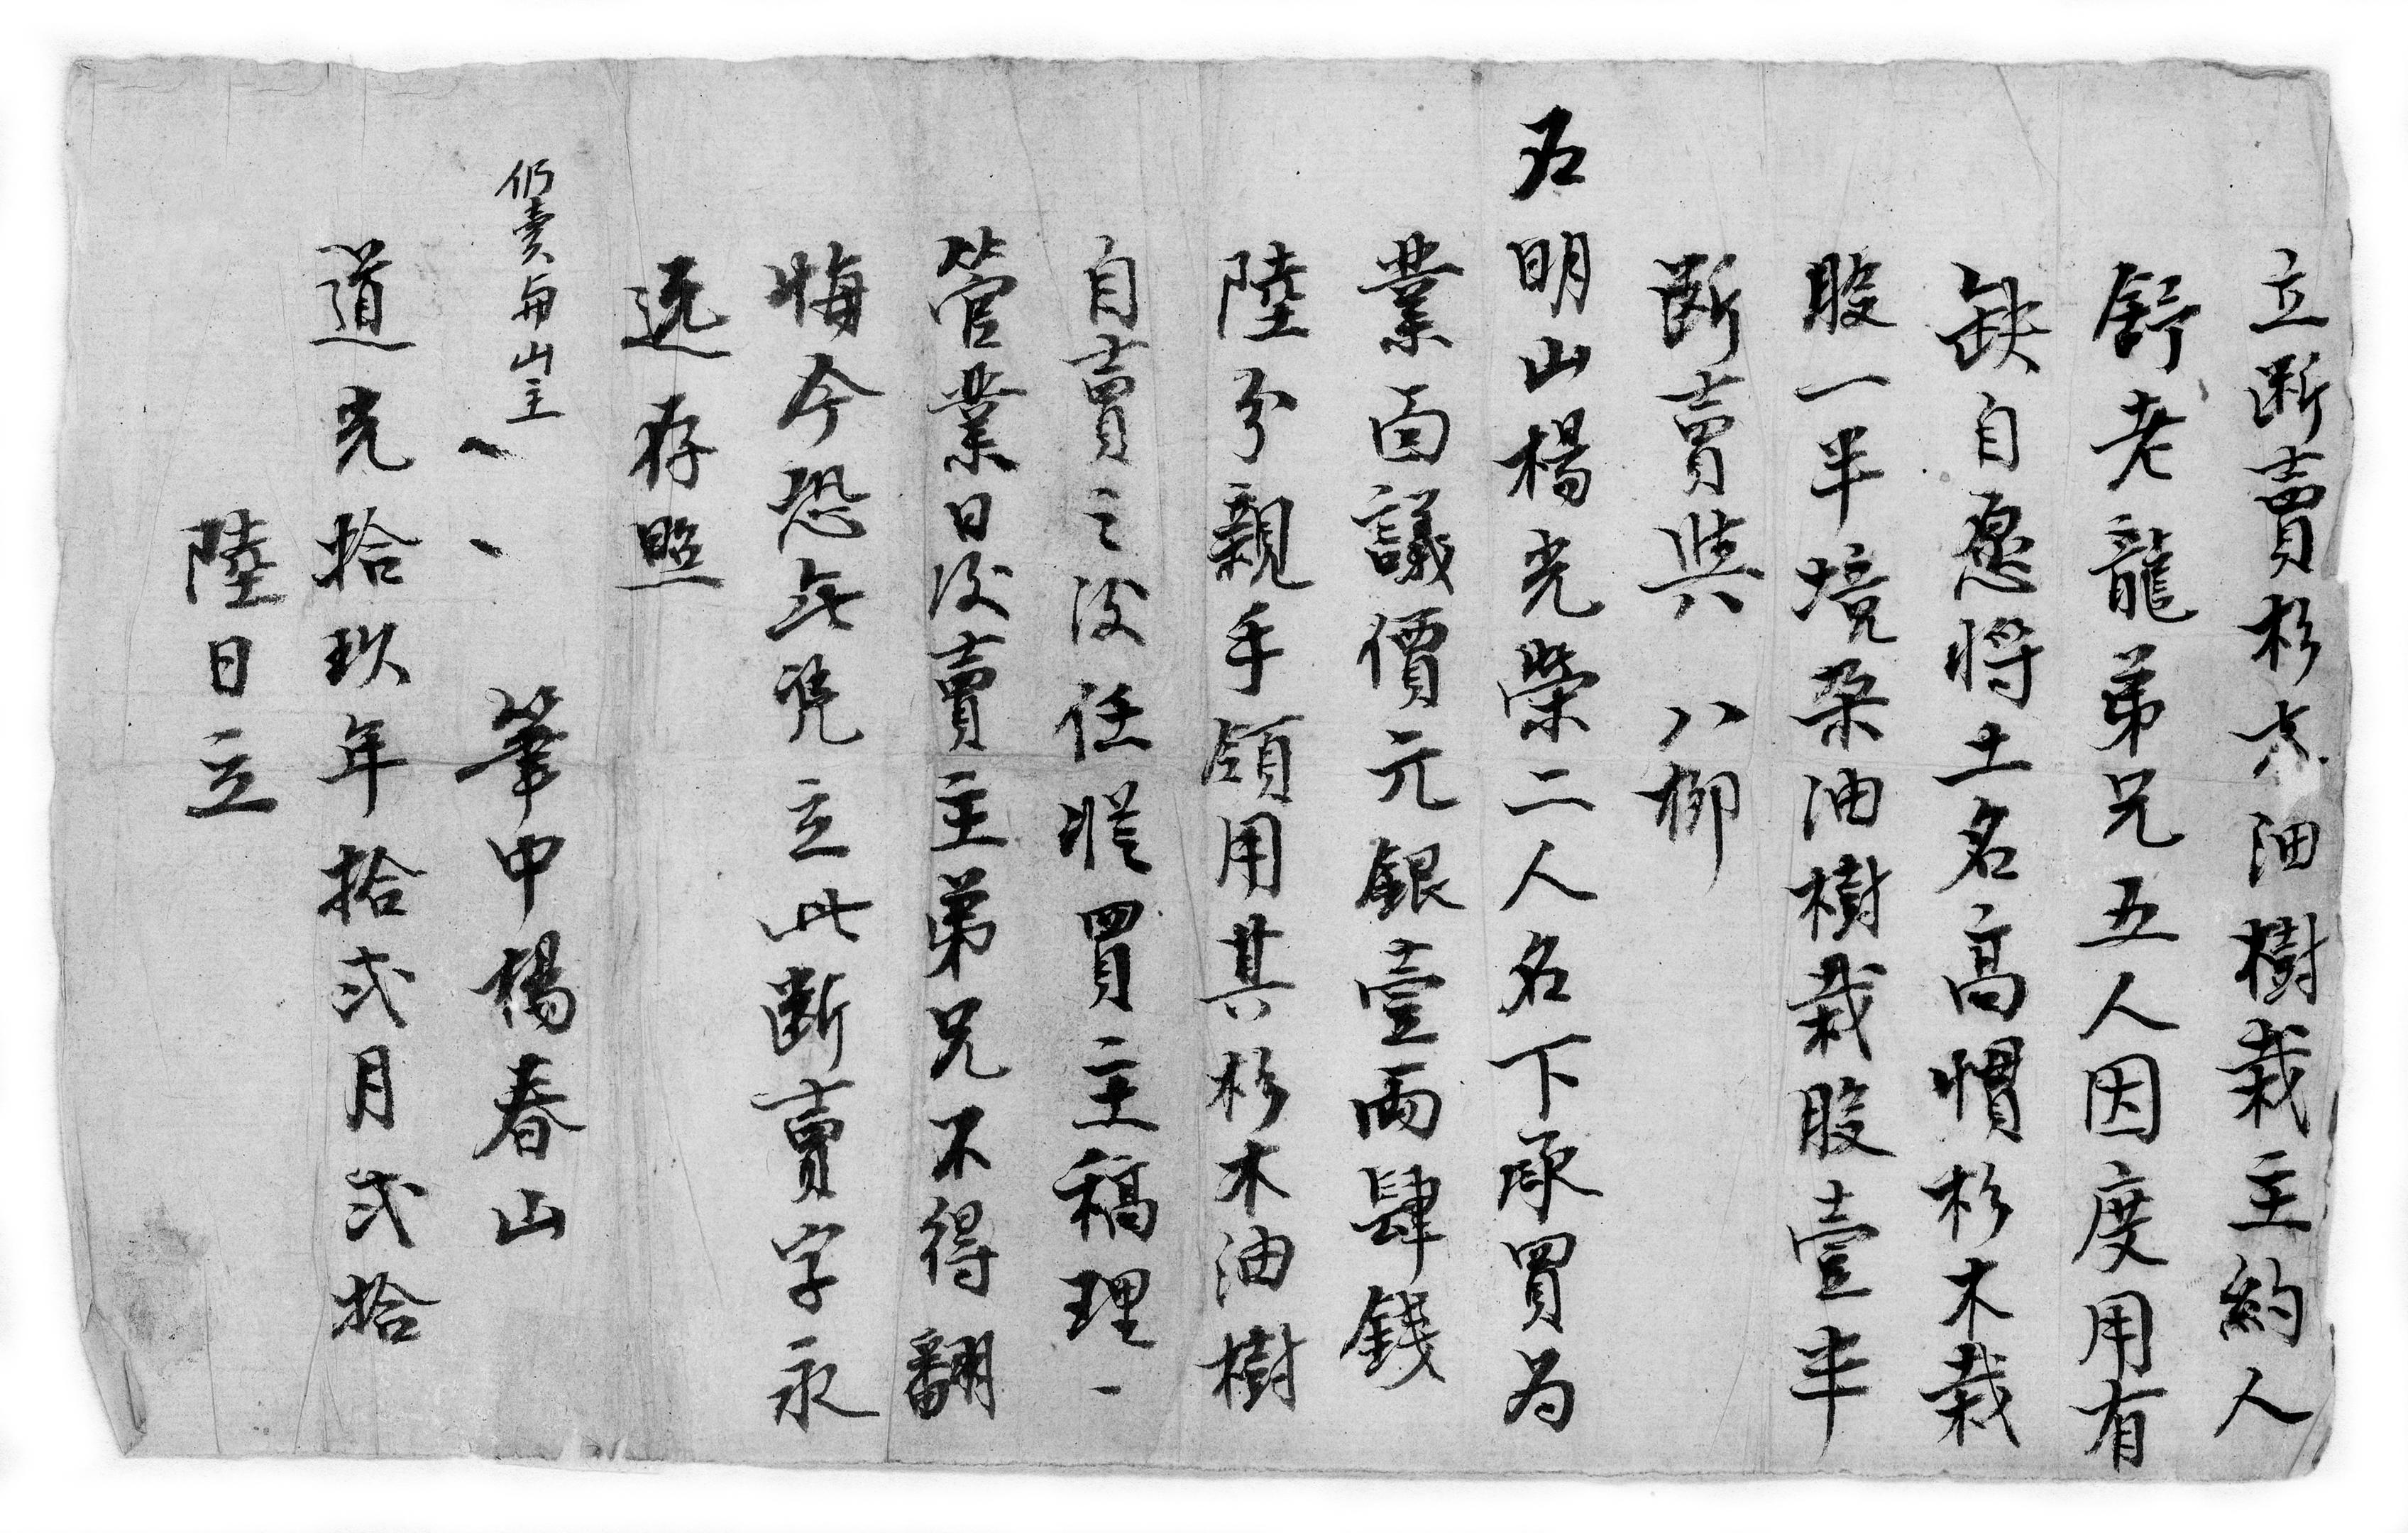 立斷賣杉木油樹栽主約人
舒老龍弟兄五人因度用有
缺自愿將土名高慣杉木栽
股一半境朶油樹栽股壹半
斷賣與 八柳
石明山楊光榮二人名下承買为
業面議價元銀壹両肆錢
陸分親手領用其杉木油樹
自賣之後任從買主稿理一
管業日後賣主弟兄不得翻
悔今恐無凴立此斷賣字永
远存照
仍賣与山主
筆中楊春山
道光拾玖年拾弍月弍拾
陸日立